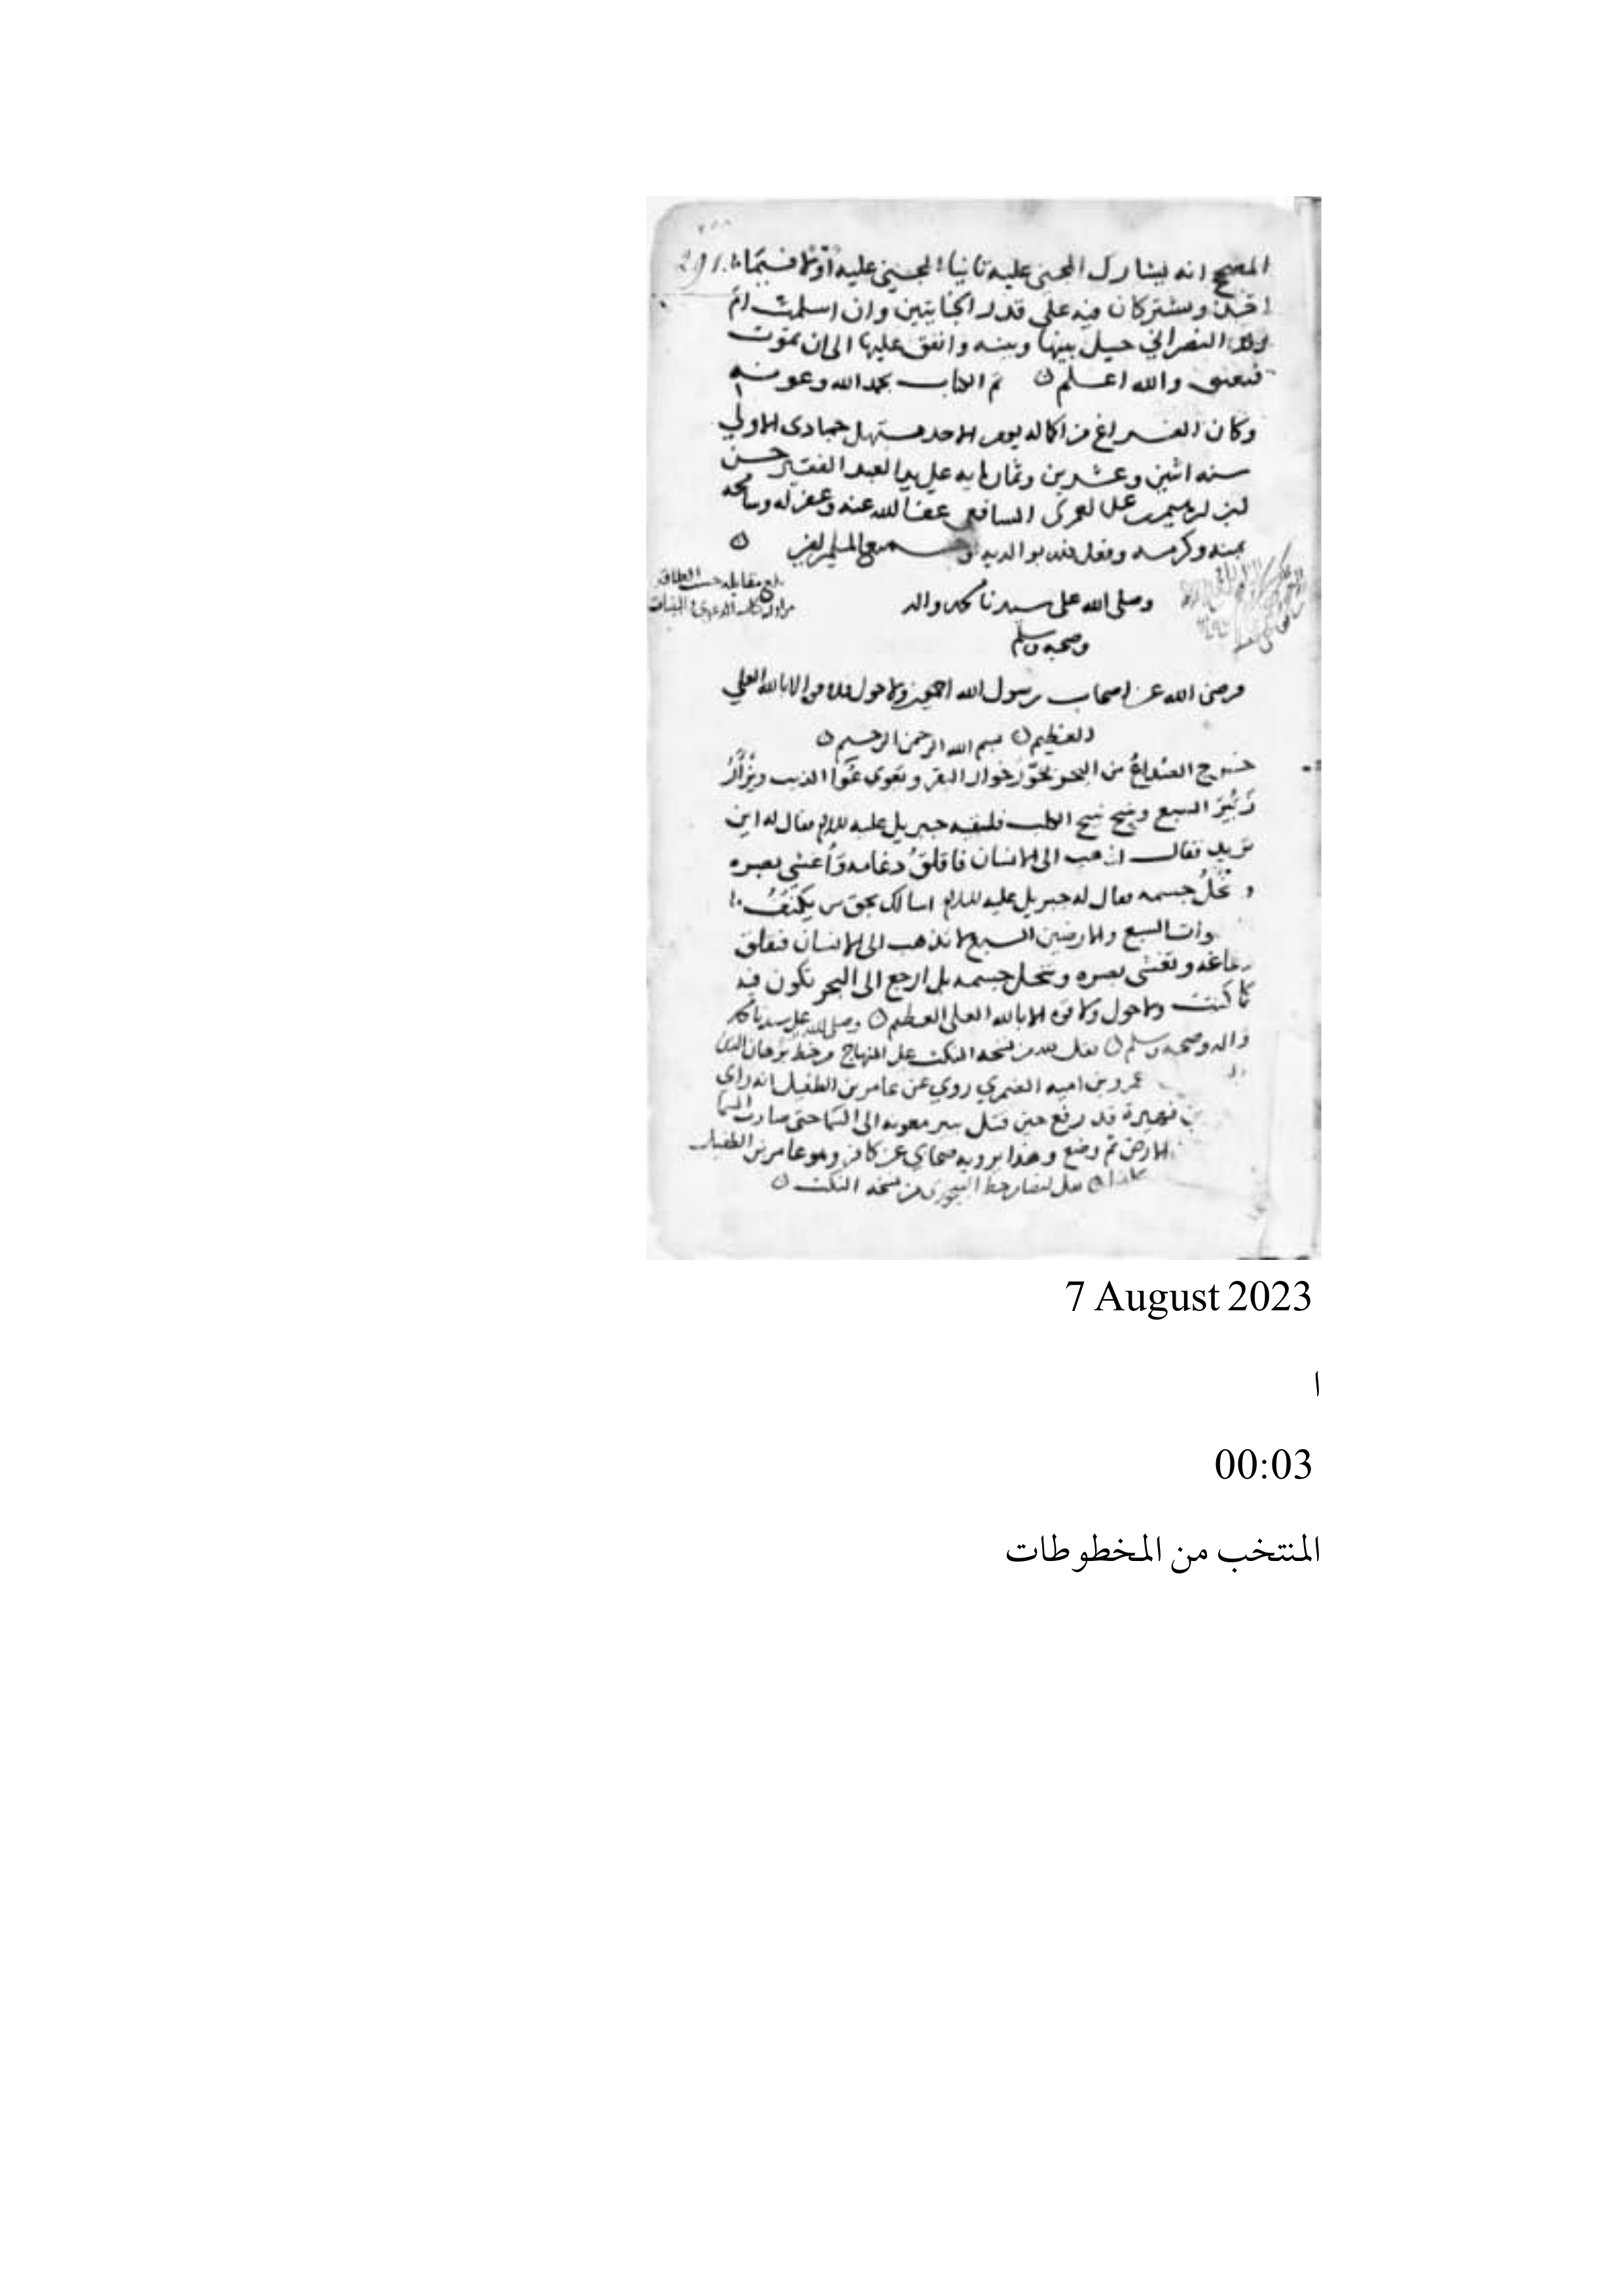 الصحيح انه يشارك المجني عليه ثانيا المجني عليه اولا فيما
291
اخذ ويشتركان فيه على قدر الجنايتين وان اسلمت ام
ولد النصراني حيل بينها وبينه وانفق عليها الى ان تموت
فتعتق والله اعلم تم الكتاب بحمد الله وعونه
وكان الفراغ من اكماله يوم الاحد مستهل جمادى الاولى
سنه اثنين وعشرين وثمان مايه على يد العبد الفقير حسن
على السافعي عفا الله عنه وغفر له وسامحه
بمنه وكرمه وفعل ذلك بوالديه وجميع المسلمين
بلغ مقابله حسب الطاقه
وصلى الله على سيدنا محمد واله
وصحبه وسلم
ورضى الله عن اصحاب رسول الله اجمعين ولا حول ولا قوة الا بالله العلي
العظيم بسم الله الرحمن الرحيم
خرج الصداع من البحر يخور خوار البقر ويعوى عوا الذيب ويزأر
زئير السبع وينبح نبح الكلب فلقيه جبريل عليه السلام فقال له اين
تريد فقال اذهب الى الانسان فاقلق دماغه واغشى بصره
وانحل جسمه فقال له جبريل عليه السلام اسالك بحق من يكنف
السبع والارضين السبع لا تذهب الى الانسان فتقلق
دماغه وتغشى بصره وتنحل جسمه بل ارجع الى البحر تكون فيه
كما كنت ولا حول ولا قوة الا بالله العلي العظيم وصلى الله على سيدنا محمد
واله وصحبه وسلم نقل من نسخه النكت على المنهاج من خط برهان الدين
عمرو بن اميه الضمري روي عن عامر بن الطفيل انه راى
بن فهيرة قد رفع حين قتل ببير معونه الى السما حتى صارت السما
الارض ثم وضع وهذا يرويه صحابي عن كافر وهو عامر بن الطفيل
نقل ايضا من خط البيجوري من نسخه النكت
7 August 2023
ا
00:03
المنتخب من المخطوطات